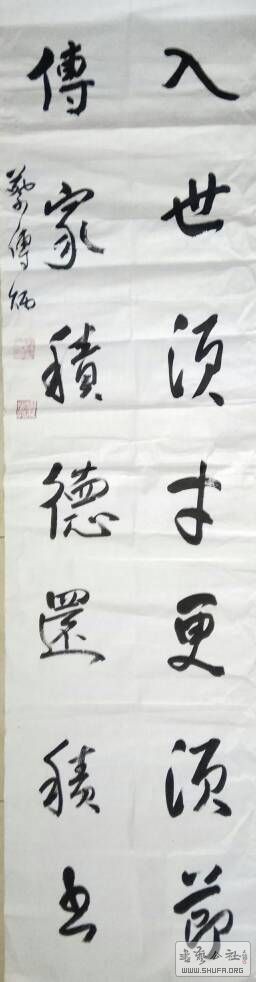 入世须才更须節
傳家積德還積书
蔡傳炳
書藝公社
WWW.SHUFA.ORG